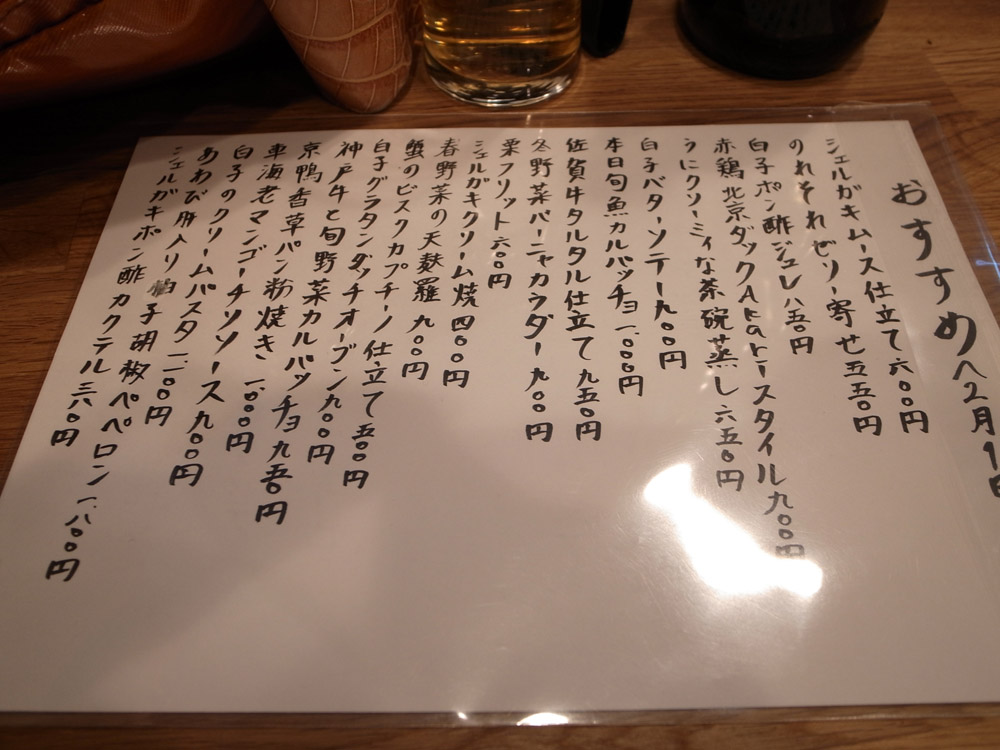 おすすめ〈2月1日
シェルガキムース仕立て六〇〇円
のれそれゼリー寄せ五五〇円
白子ポン酢ジュレ八五〇円
赤鶏北京ダックAkariスタイル九〇〇円
うにクリーミィな茶碗蒸し六五〇円
白子バターソテー九〇〇円
本日旬魚カルパッチョ一、〇〇〇円
佐賀牛タルタル仕立て九五〇円
冬野菜バーニャカウダー九〇〇円
栗フリット六〇〇円
シェルガキクリーム焼四〇〇円
春野菜の天麩羅九〇〇円
蟹のビスクカプチーノ仕立て五〇〇円
白子グラタンダッチオーブン九〇〇円
神戸牛と旬野菜カルパッチョ九五〇円
京鴨香草パン粉焼き一、〇〇〇円
車海老マンゴーチリソース九〇〇円
白子のクリームパスタ
あわび肝入り柚子胡椒ペペロン一、八〇〇円
シェルガキポン酢カクテル三六〇円